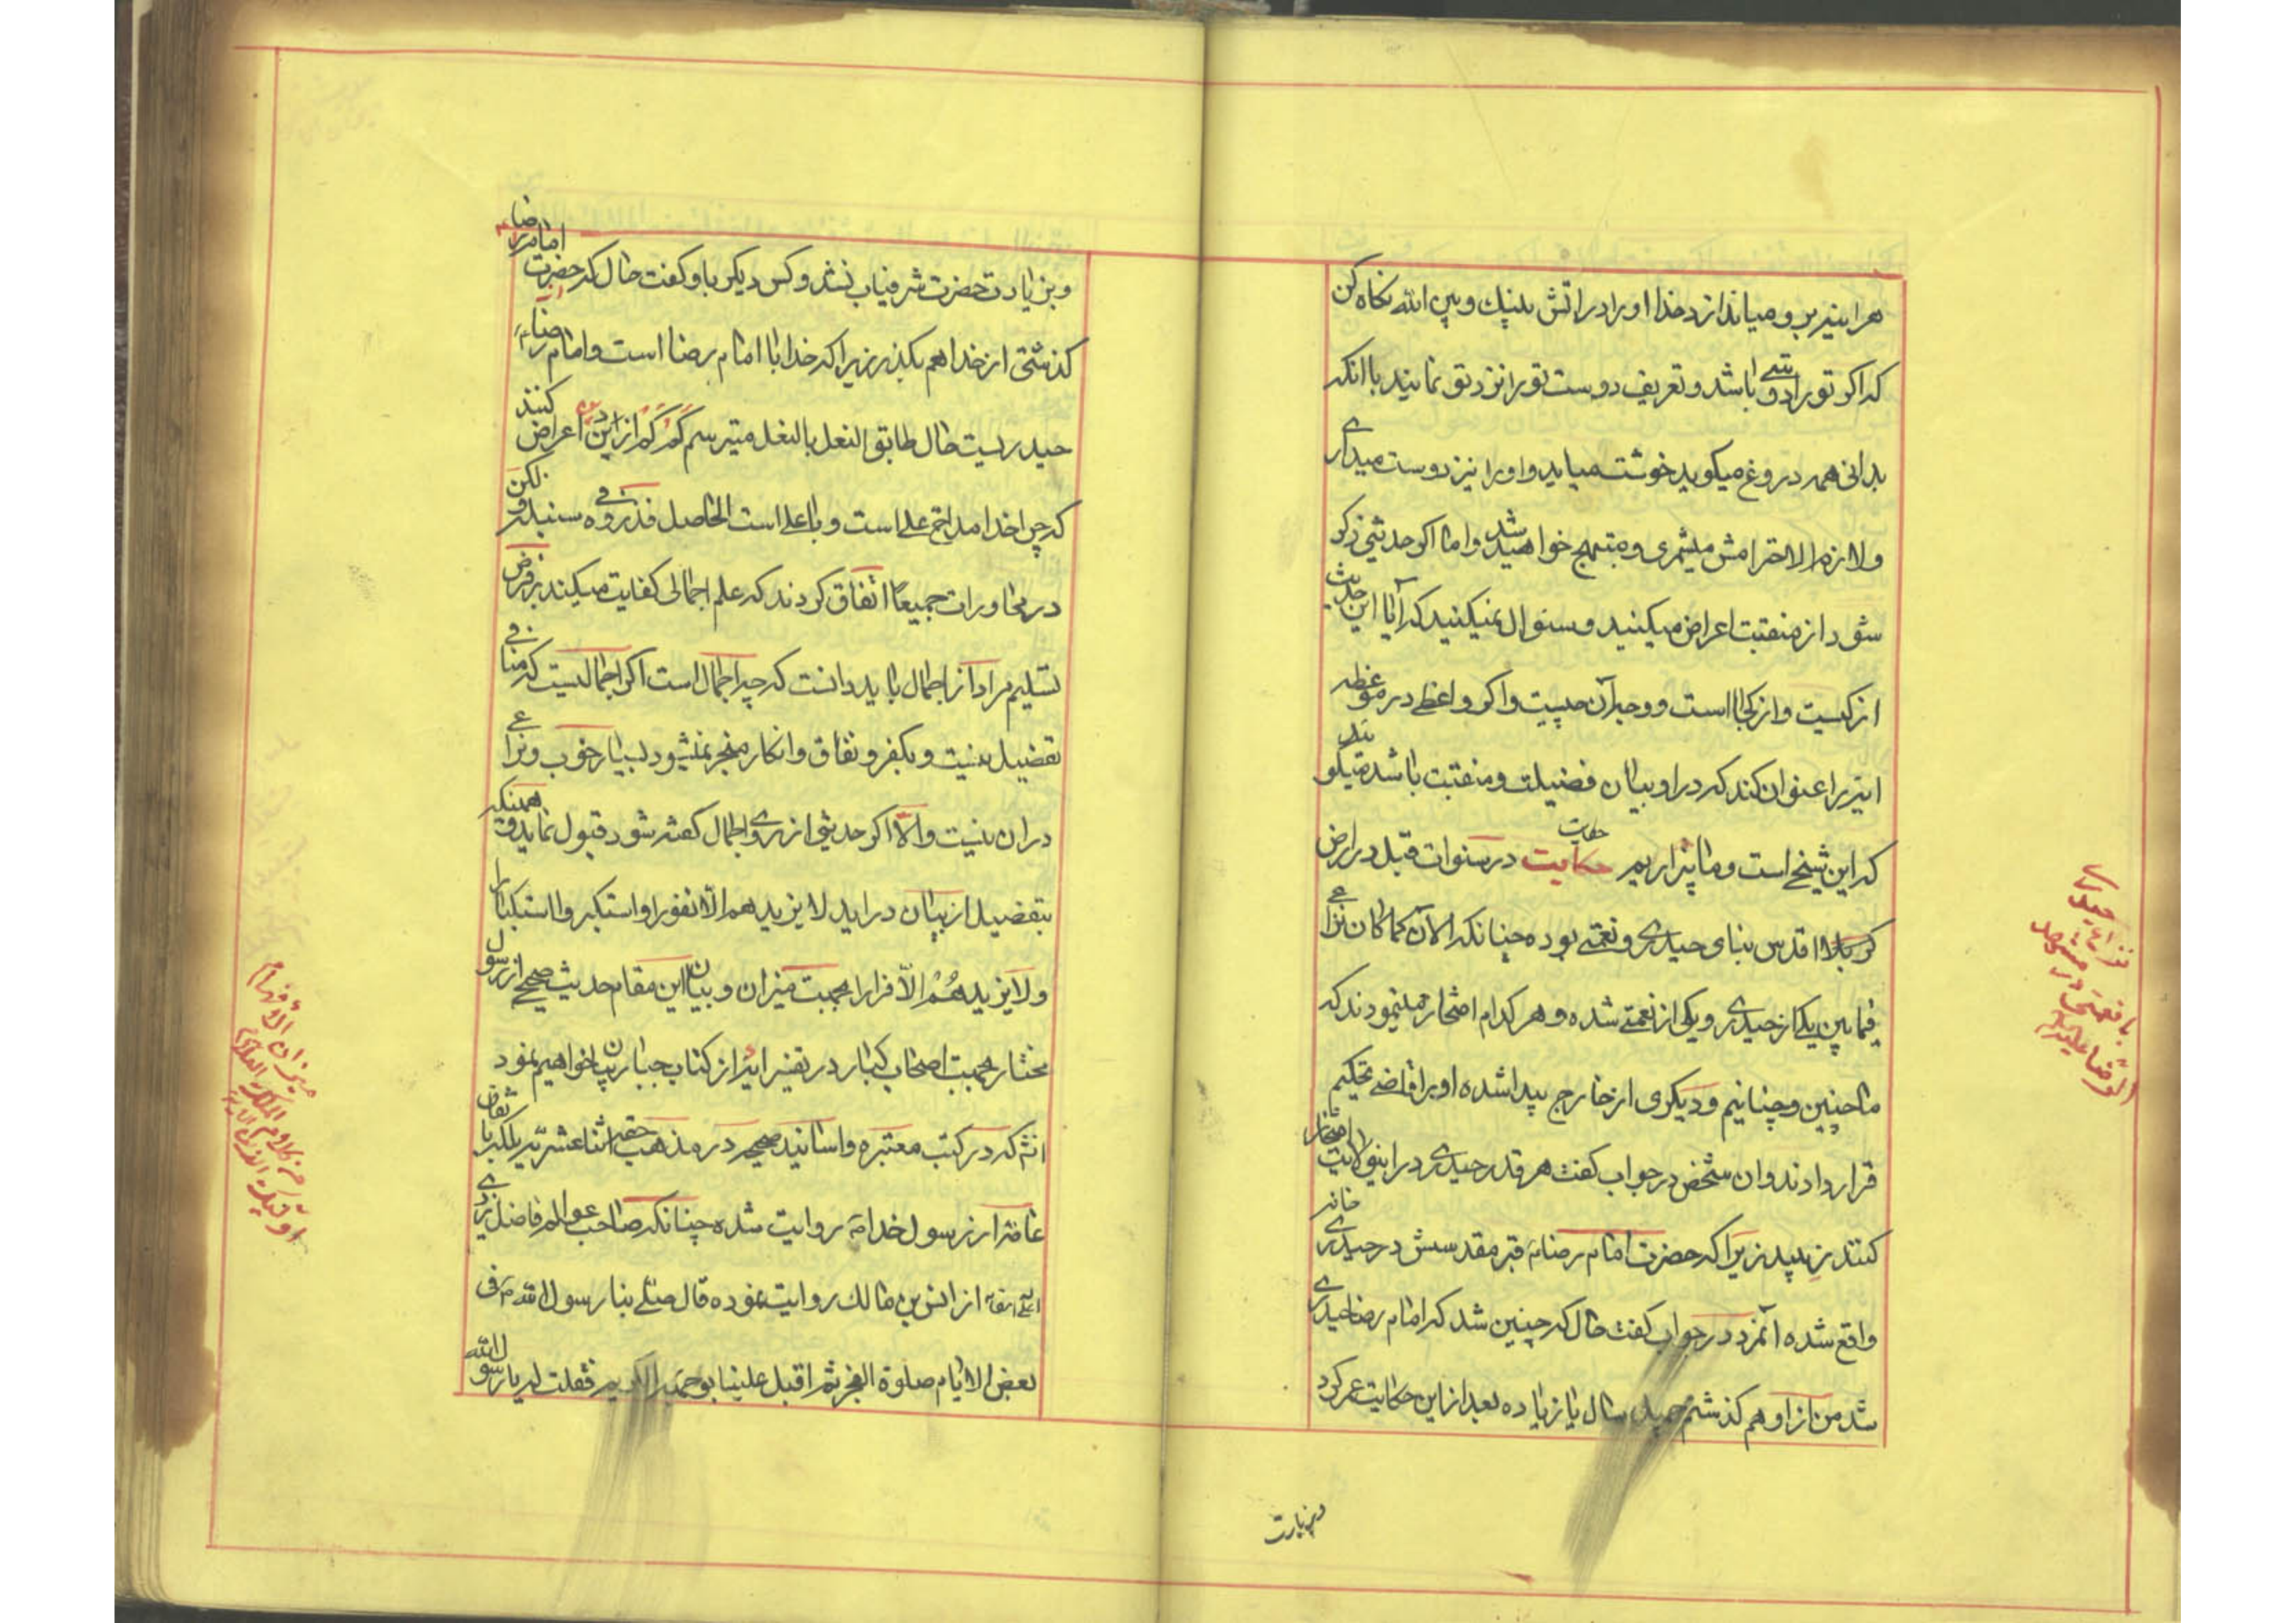 هر اینبربرو میاندازد خدا او را در اتش بینک و بین الله نکاه کن
که اکر تو را دوستی باشد و تعریف دوست تو را نزد تو نمایند با انکه
بدانی همه دروغ میکوید خوشت میاید و او را نیز دوست میداری
و لازم الاحترامش میشمری و مبتهج خواهید شد و اما اکر حدیثی ذکر
شود از منقبت اعراض میکنید و سئوال نمیکنید که آیا این حدیث
از کیست و از کجا است و وجه آن چیست و اکر واعظی در موعظه
ایتیرا عنوان کند که در او بیان فضیلت و منقبت باشد میکویند
که این شیخی است و ما بیزاریم حکایت در سنوات قبل در ارض
کربلا اقدس بنای حیدری و نعمتی بوده چنانکه الآن کما کان نزاعی
فیما بین یکی از حیدری و یکی از نعمتی شده و هر کدام افتخار مینمودند که
ما چنین و چنانیم و دیکری از خارج پیدا شده او را قاضی تحکیم
قرار دادند و ان شخص در جواب کفت هر قدر حیدری در این ولایت افتخار
کنند زیبید زیرا که حضرت امام رضا قبر مقدسش در حیدری خانه
واقع شده آنمرد در جواب کفت حال که چنین شد که امام رضا حیدری
شد من از او هم کذشتم چهل سال یا زیاده بعد از این حکایت عمر کرد
و بزیارت
نزاع حیدری
با نعمتی در مشهد
الرضا علیه السلام
و بزیارت حضرت شرفیاب نشد و کس دیکر باو کفت حال که حضرت امام رضا
کذشتی از خدا هم بکذر زیرا که خدا با امام رضا است و امام رضا
حیدریست حال طابق النعل بالنعل میترسم کم کم از این در اعراض کنند
که چرا خدا مداح علی است و با علی است الحاصل فذروه فی سنبله و لکن
در محاورات جمیعا اتفاق کردند که علم اجمالی کفایت میکند بر فرض
تسلیم مراد از اجمال باید دانست که چه اجمال است اکر اجمالیست که منافی
تفضیل نیست و بکفر و نفاق و انکار منجر نمیشود بسیار خوب و نزاعی
در ان نیست و الا اکر حدیثی از روی اجمال کفته شود قبول نماید و همینکه
بتفضیل از بیان دراید لا یزیدهم الا نفورا و استکبروا استکبارا
و لا یزیدهُمُ الّا فرارا بجهت میزان و بیان این مقام حدیث صحیح از رسول
مختار بجهت اصحاب کبار در تفسیر ایة از کتاب جبار بیان خواهیم نمود
انش که در کتب معتبره و اسانید صحیحه در مذهب حقه اثنا عشریه بلکه با ثقات
عامه از رسول خدا روایت شده چنانکه صاحب عوالم فاضل یزدی
از انس بن مالک روایت نموده قال صلی بنا رسول الله فی
بعض الایام صلوة الفجر ثم اقبل علینا بوجهه الکریم فقلت له یا رسول الله
میزان الأفهام
من کلام الملک العلام